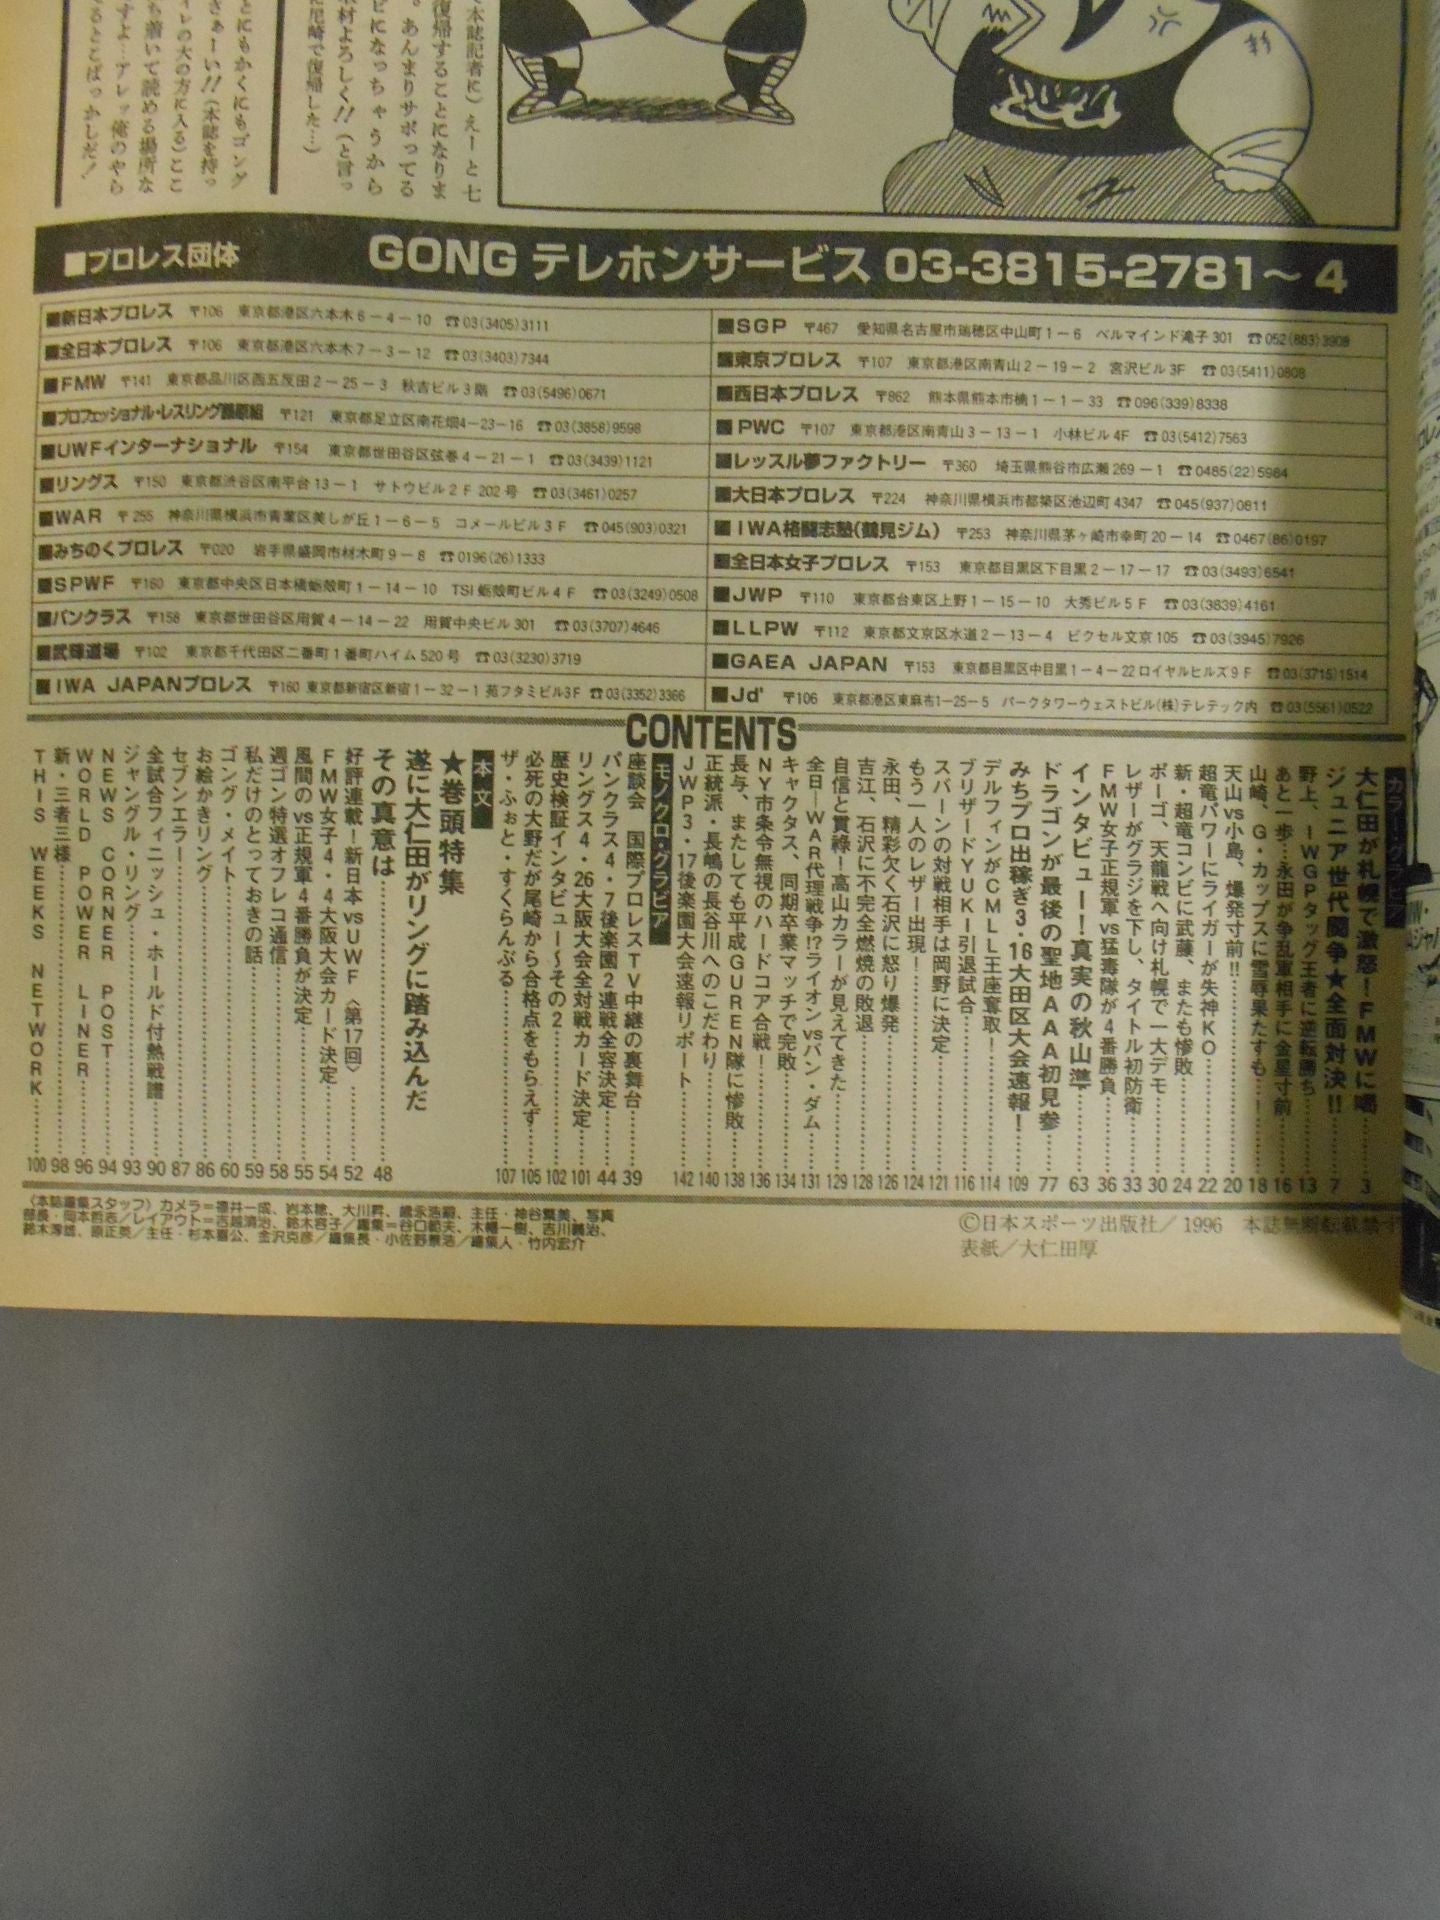 て本誌記者に）えーと七
復帰することになりま
。あんまりサボってる
ビになっちゃうから
取材よろしく!!（と言っ
に尼崎で復帰した…）
とにもかくにもゴング
さぁーい!!（本誌を持っ
イレの大の方に入る）ここ
ち着いて読める場所な
すよ…アレッ俺のやら
るとこばっかしだ！
■プロレス団体 GONG テレホンサービス 03-3815-2781～4
■新日本プロレス 〒106 東京都港区六本木6－4－10 ☎03(3405)3111
■全日本プロレス 〒106 東京都港区六本木7－3－12 ☎03(3403)7344
■FMW 〒141 東京都品川区西五反田2－25－3 秋吉ビル3階 ☎03(5496)0671
■プロフェッショナル・レスリング藤原組 〒121 東京都足立区南花畑4－23－16 ☎03(3858)9598
■UWFインターナショナル 〒154 東京都世田谷区弦巻4－21－1 ☎03(3439)1121
■リングス 〒150 東京都渋谷区南平台13－1 サトウビル2F 202号 ☎03(3461)0257
■WAR 〒255 神奈川県横浜市青葉区美しが丘1－6－5 コメールビル3F ☎045(903)0321
■みちのくプロレス 〒020 岩手県盛岡市材木町9－8 ☎0196(26)1333
■SPWF 〒160 東京都中央区日本橋蛎殻町1－14－10 TSI蛎殻町ビル4F ☎03(3249)0508
■パンクラス 〒158 東京都世田谷区用賀4－14－22 用賀中央ビル301 ☎03(3707)4646
■武輝道場 〒102 東京都千代田区二番町1番町ハイム520号 ☎03(3230)3719
■IWA JAPANプロレス 〒160 東京都新宿区新宿1－32－1 苑フタミビル3F ☎03(3352)3366
■SGP 〒467 愛知県名古屋市瑞穂区中山町1－6 ベルマインド滝子301 ☎052(883)3908
■東京プロレス 〒107 東京都港区南青山2－19－2 宮沢ビル3F ☎03(5411)0808
■西日本プロレス 〒862 熊本県熊本市楠1－1－33 ☎096(339)8338
■PWC 〒107 東京都港区南青山3－13－1 小林ビル4F ☎03(5412)7563
■レッスル夢ファクトリー 〒360 埼玉県熊谷市広瀬269－1 ☎0485(22)5984
■大日本プロレス 〒224 神奈川県横浜市都築区池辺町4347 ☎045(937)0811
■IWA格闘志塾(鶴見ジム) 〒253 神奈川県茅ヶ崎市幸町20－14 ☎0467(86)0197
■全日本女子プロレス 〒153 東京都目黒区下目黒2－17－17 ☎03(3493)6541
■JWP 〒110 東京都台東区上野1－15－10 大秀ビル5F ☎03(3839)4161
■LLPW 〒112 東京都文京区水道2－13－4 ピクセル文京105 ☎03(3945)7926
■GAEA JAPAN 〒153 東京都目黒区中目黒1－4－22ロイヤルヒルズ9F ☎03(3715)1514
■Jd' 〒106 東京都港区東麻布1-25-5 パークタワーウェストビル(株)テレテック内 ☎03(5561)0522
CONTENTS
カラー・グラビア
大仁田が札幌で激怒！FMWに喝……3
ジュニア世代闘争★全面対決!!……7
野上、IWGPタッグ王者に逆転勝ち……13
あと一歩…永田が争乱軍相手に金星寸前……16
山崎、G・カップスに雪辱果たすも…！……18
天山vs小島、爆発寸前!!……20
超竜パワーにライガーが失神KO……22
新・超竜コンビに武藤、またも惨敗……24
ボーゴ、天龍戦へ向け札幌で一大デモ……30
レザーがグラジを下し、タイトル初防衛……33
FMW女子正規軍vs猛毒隊が4番勝負……36
インタビュー！真実の秋山準……63
ドラゴンが最後の聖地AAA初見参……77
みちプロ出稼ぎ3・16大田区大会速報！……109
デルフィンがCMLL王座奪取！……114
ブリザードYUKI引退試合……116
スバーンの対戦相手は岡野に決定……121
もう一人のレザー出現！……124
永田、精彩欠く石沢に怒り爆発……126
吉江、石沢に不完全燃焼の敗退……128
自信と貫祿！高山カラーが見えてきた……129
全日―WAR代理戦争!?ライオンvsバン・ダム……131
キャクタス、同期卒業マッチで完敗……134
NY市条令無視のハードコア合戦！……136
長与、またしても平成GUREN隊に惨敗……138
正統派・長嶋の長谷川へのこだわり……140
JWP3・17後楽園大会速報リポート……142
モノクロ・グラビア
座談会 国際プロレスTV中継の裏舞台……39
パンクラス4・7後楽園2連戦全容決定……44
リングス4・26大阪大会全対戦カード決定……101
歴史検証インタビュー～その2……102
必死の大野だが尾崎から合格点をもらえず……105
ザ・ふぉと・すくらんぶる……107
本文
★巻頭特集
遂に大仁田がリングに踏み込んだ
その真意は……48
好評連載！新日本vsUWF〈第17回〉……52
FMW女子4・4大阪大会カード決定……54
風間のvs正規軍4番勝負が決定……55
週ゴン特選オフレコ通信……58
私だけのとっておきの話……59
ゴング・メイト……60
お絵かきリング……86
セブンエラー……87
全試合フィニッシュ・ホールド付熱戦譜……90
ジャングル・リング……93
NEWS CORNER POST……94
WORLD POWER LINER……96
新・三者三様……98
THIS WEEKS NETWORK……100
〈本誌編集スタッフ〉カメラ＝徳井一成、岩本稔、大川昇、嶋永浩嗣、主任・神谷繁美、写真
部長・岡本哲志／レイアウト＝吉越満治、鈴木容子／編集＝谷口範夫、木幡一樹、吉川義治、
鈴木淳雄、原正英／主任・杉本喜公、金沢克彦／編集長・小佐野景浩／編集人・竹内宏介
©日本スポーツ出版社／1996 本誌無断転載禁ず
表紙／大仁田厚